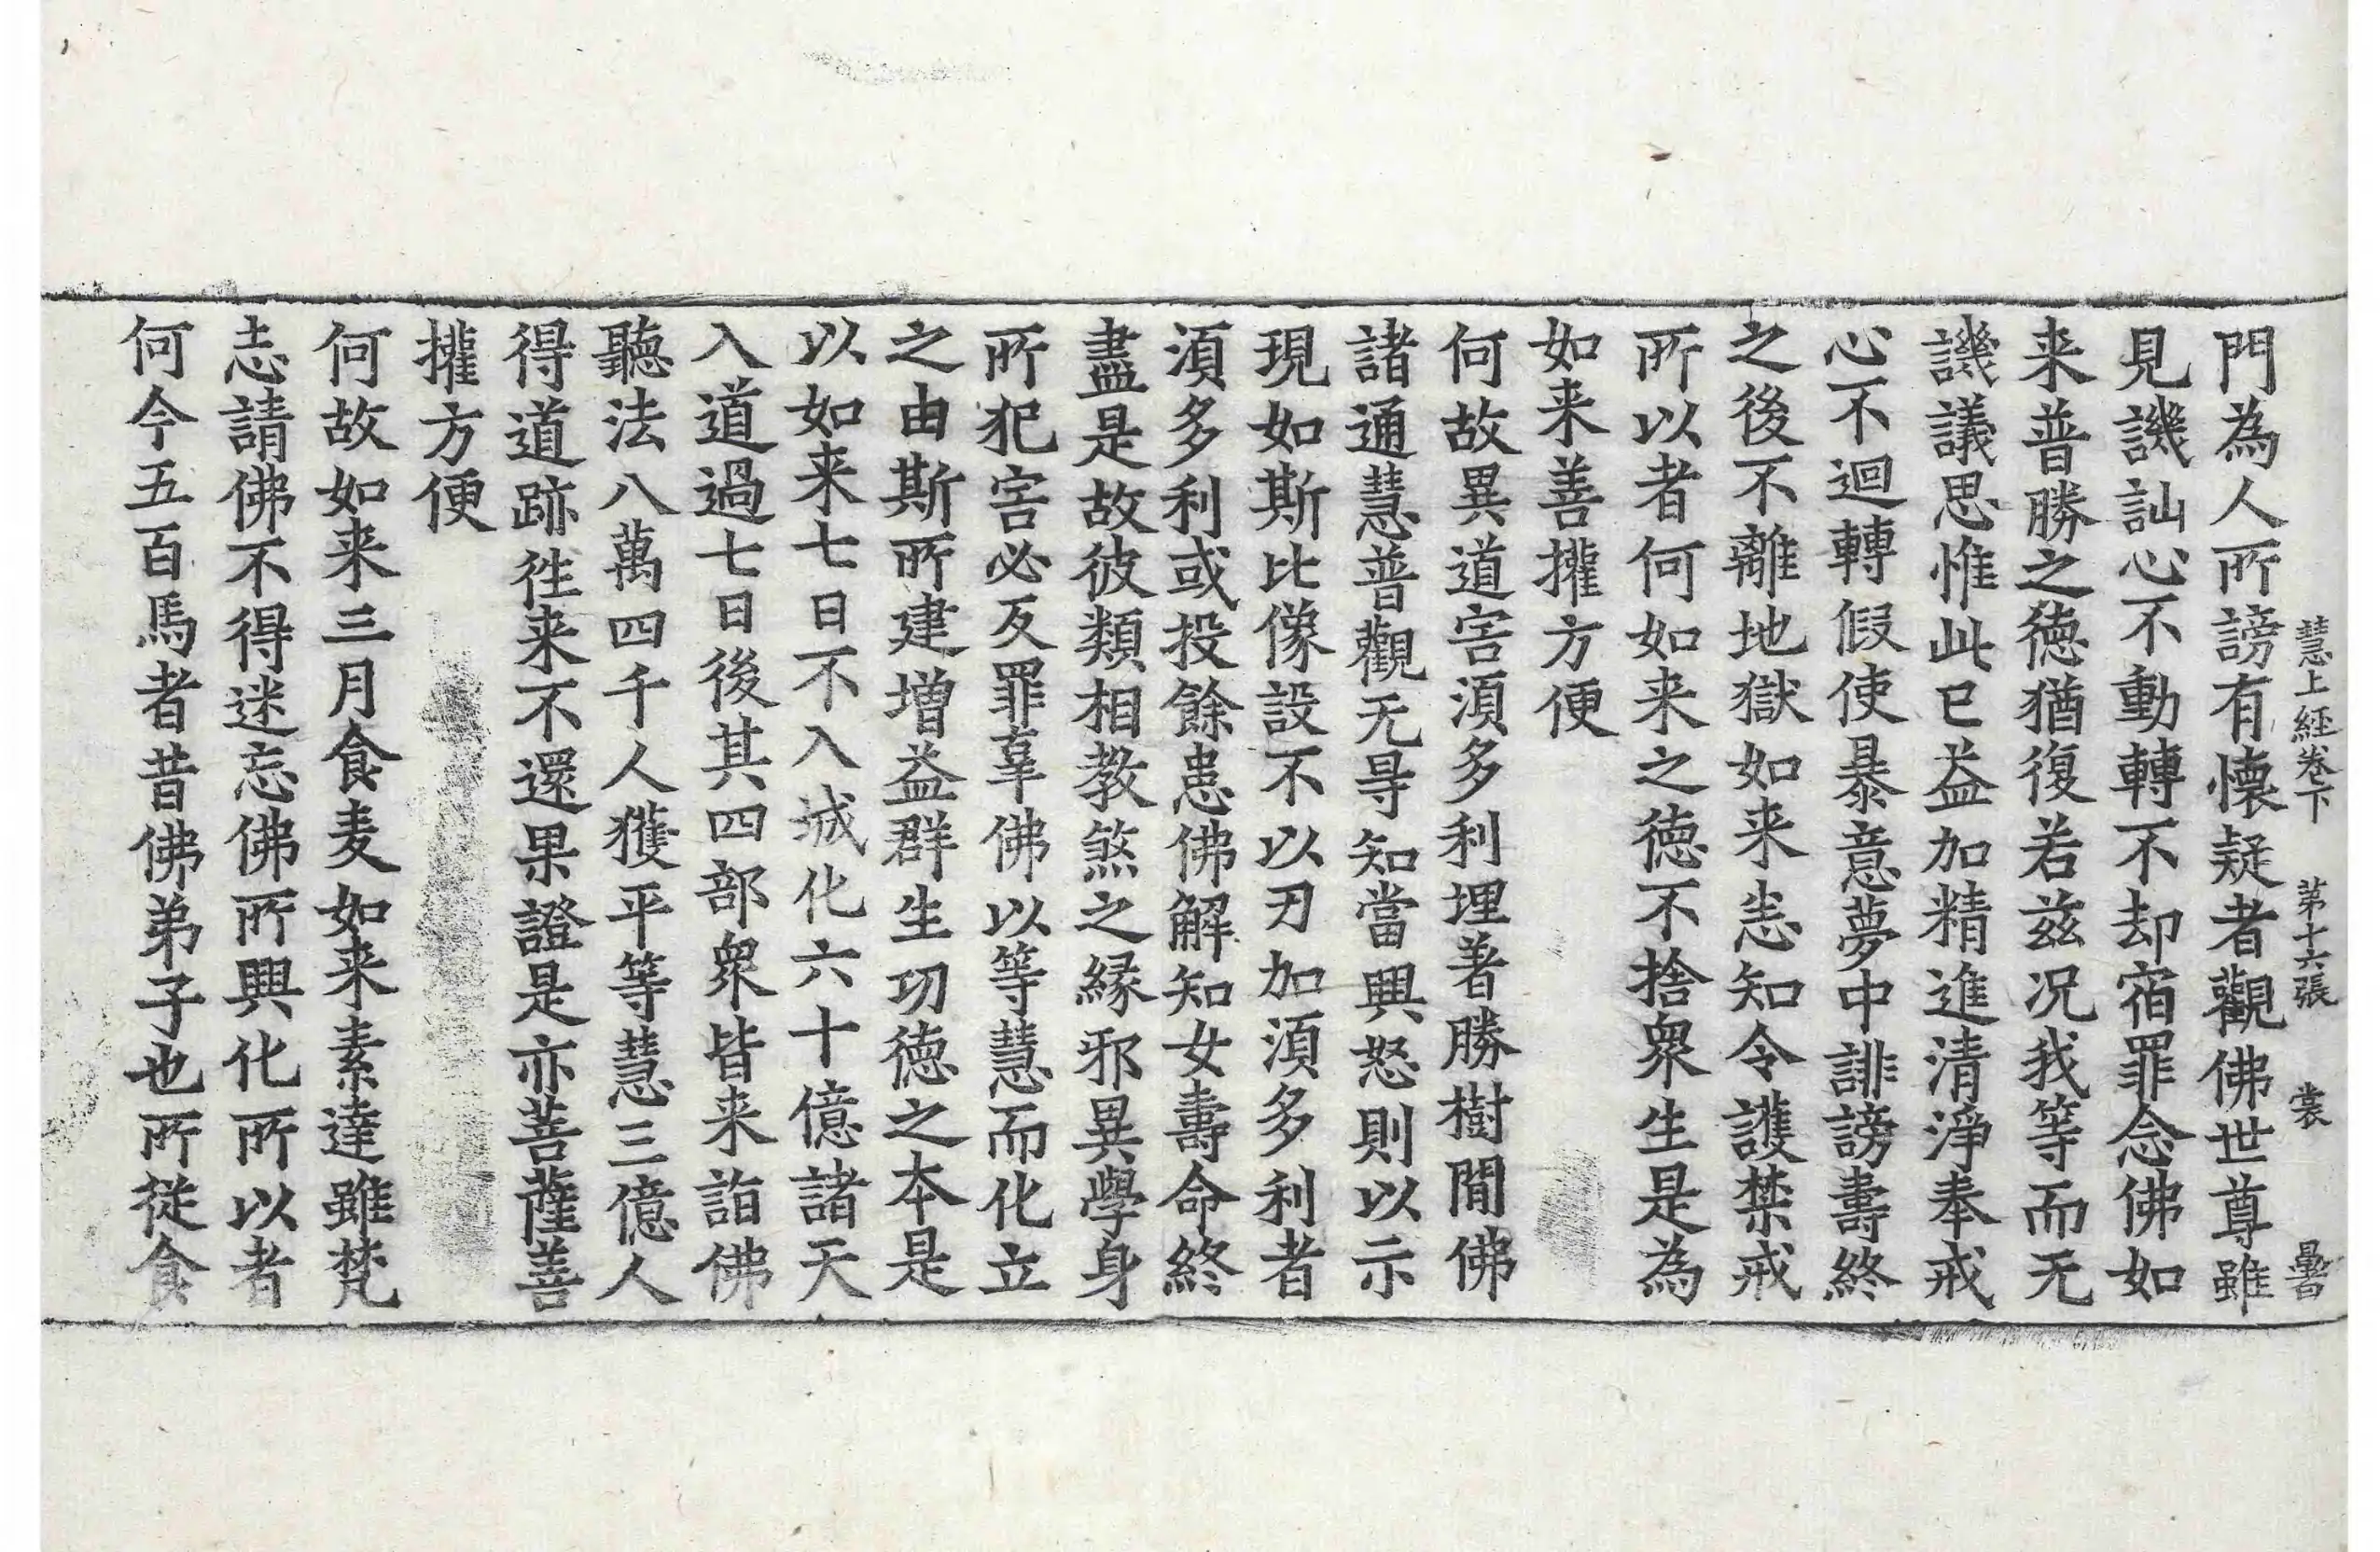 慧上經卷下　第十六張　裳　曇
門為人所謗有懷疑者觀佛世尊雖
見譏訕心不動轉不却宿罪念佛如
来普勝之徳猶復若兹况我等而无
譏議思惟此已益加精進清淨奉戒
心不迴轉假使暴意夢中誹謗壽終
之後不離地獄如来恙知令護禁戒
所以者何如来之徳不捨衆生是為
如来善攉方便
何故異道害湏多利埋著勝樹間佛
諸通慧普觀无㝵知當興怒則以示
現如斯比像設不以刃加湏多利者
湏多利或投餘患佛解知女壽命終
盡是故彼類相教煞之縁邪異學身
所犯害必反罪辜佛以等慧而化立
之由斯所建增益群生功徳之本是
以如来七日不入城化六十億諸天
入道過七日後其四部衆皆来詣佛
聽法八萬四千人獲平等慧三億人
得道跡徃来不還果證是亦菩薩善
攉方便
何故如来三月食麦如来素達雖梵
志請佛不得迷忘佛所興化所以者
何今五百馬者昔佛弟子也所従食